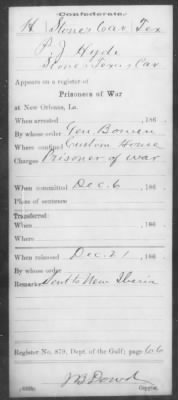 Confederate.
H Stones Cav. Tex
P. J. Hyde
Stones Texas Cav
Appears on a register of
Prisoners of War
at New Orleans, La.
When arrested , 186
By whose order Gen Bowen
Where confined Custom House
Charges Prisoner of war
When committed Dec. 6 , 186
Place of sentence
Transferred:
When , 186
Where
When released Dec. 21 , 186
By whose order
Remarks: Sent to New Iberia
Register No. 879, Dept. of the Gulf; page 66
J B Dowd
Copyist.